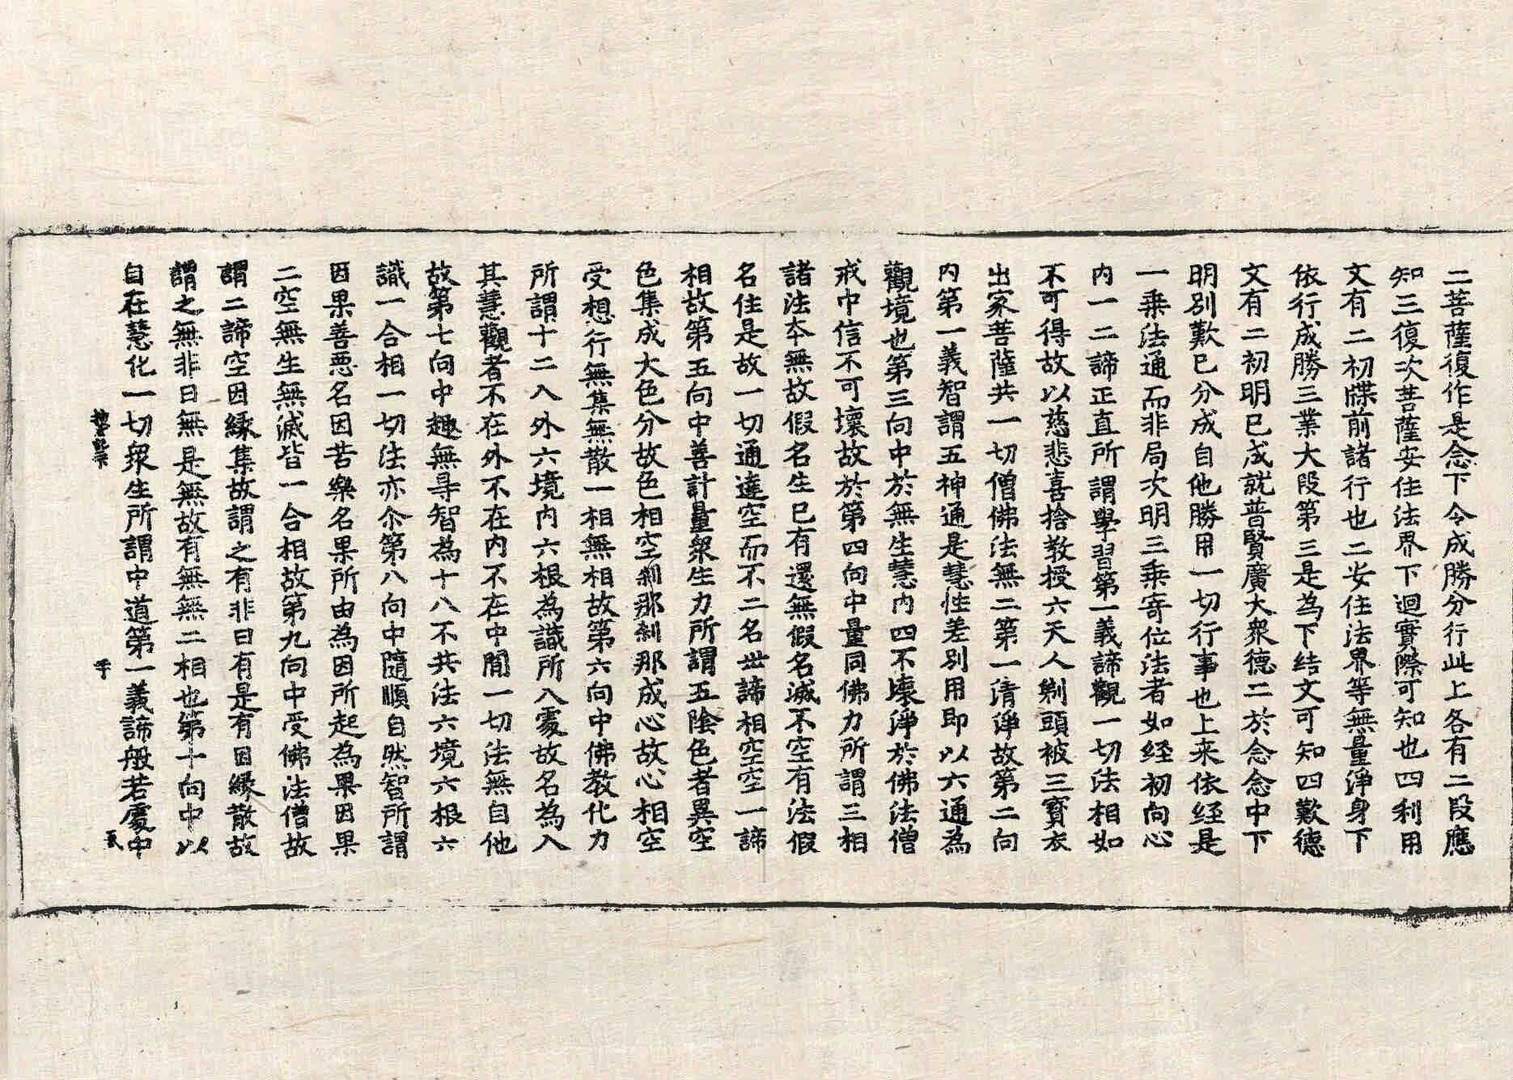 二菩薩復作是念下令成勝分行此上各有二段應
知三復次菩薩安住法界下迴實際可知也四利用
文有二初牒前諸行也二安住法界等無量淨身下
依行成勝三業大段第三是為下結文可知四歎德
文有二初明已成就普賢廣大衆德二於念念中下
明別歎已分成自他勝用一切行事也上来依經是
一乗法通而非局次明三乗寄位法者如經初向心
内一二諦正直所謂學習第一義諦觀一切法相如
不可得故以慈悲喜捨教授六天人剃頭被三寶衣
出家菩薩共一切僧佛法無二第一清淨故第二向
内第一義智謂五神通是慧性差別用即以六通為
觀境也第三向中於無生慧内四不壊淨於佛法僧
戒中信不可壊故於第四向中量同佛力所謂三相
諸法夲無故假名生已有還無假名滅不空有法假
名住是故一切通達空而不二名世諦相空空一諦
相故第五向中善計量衆生力所謂五陰色者異空
色集成大色分故色相空刹那刹那成心故心相空
受想行無集無散一相無相故第六向中佛教化力
所謂十二入外六境内六根為識所入處故名為入
其慧觀者不在外不在内不在中間一切法無自他
故第七向中趣無㝵智為十八不共法六境六根六
識一合相一切法亦尒第八向中隨順自然智所謂
因果善悪名因苦樂名果所由為因所起為果因果
二空無生無滅皆一合相故第九向中受佛法僧故
謂二諦空因縁集故謂之有非曰有是有因縁散故
謂之無非曰無是無故有無無二相也第十向中以
自在慧化一切衆生所謂中道第一義諦般若處中